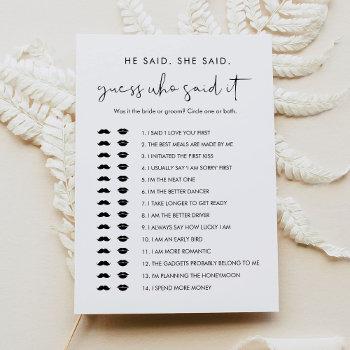 HE SAID. SHE SAID.
guess who said it
Was it the bride or groom? Circle one or both.
1. I SAID I LOVE YOU FIRST
2. THE BEST MEALS ARE MADE BY ME
3. I INITIATED THE FIRST KISS
4. I USUALLY SAY 'I AM SORRY' FIRST
5. I'M THE NEAT ONE
6. I'M THE BETTER DANCER
7. I TAKE LONGER TO GET READY
8. I AM THE BETTER DRIVER
9. I ALWAYS SAY HOW LUCKY I AM
10. I AM AN EARLY BIRD
11. I AM MORE ROMANTIC
12. THE GADGETS PROBABLY BELONG TO ME
13. I'M PLANNING THE HONEYMOON
14. I SPEND MORE MONEY